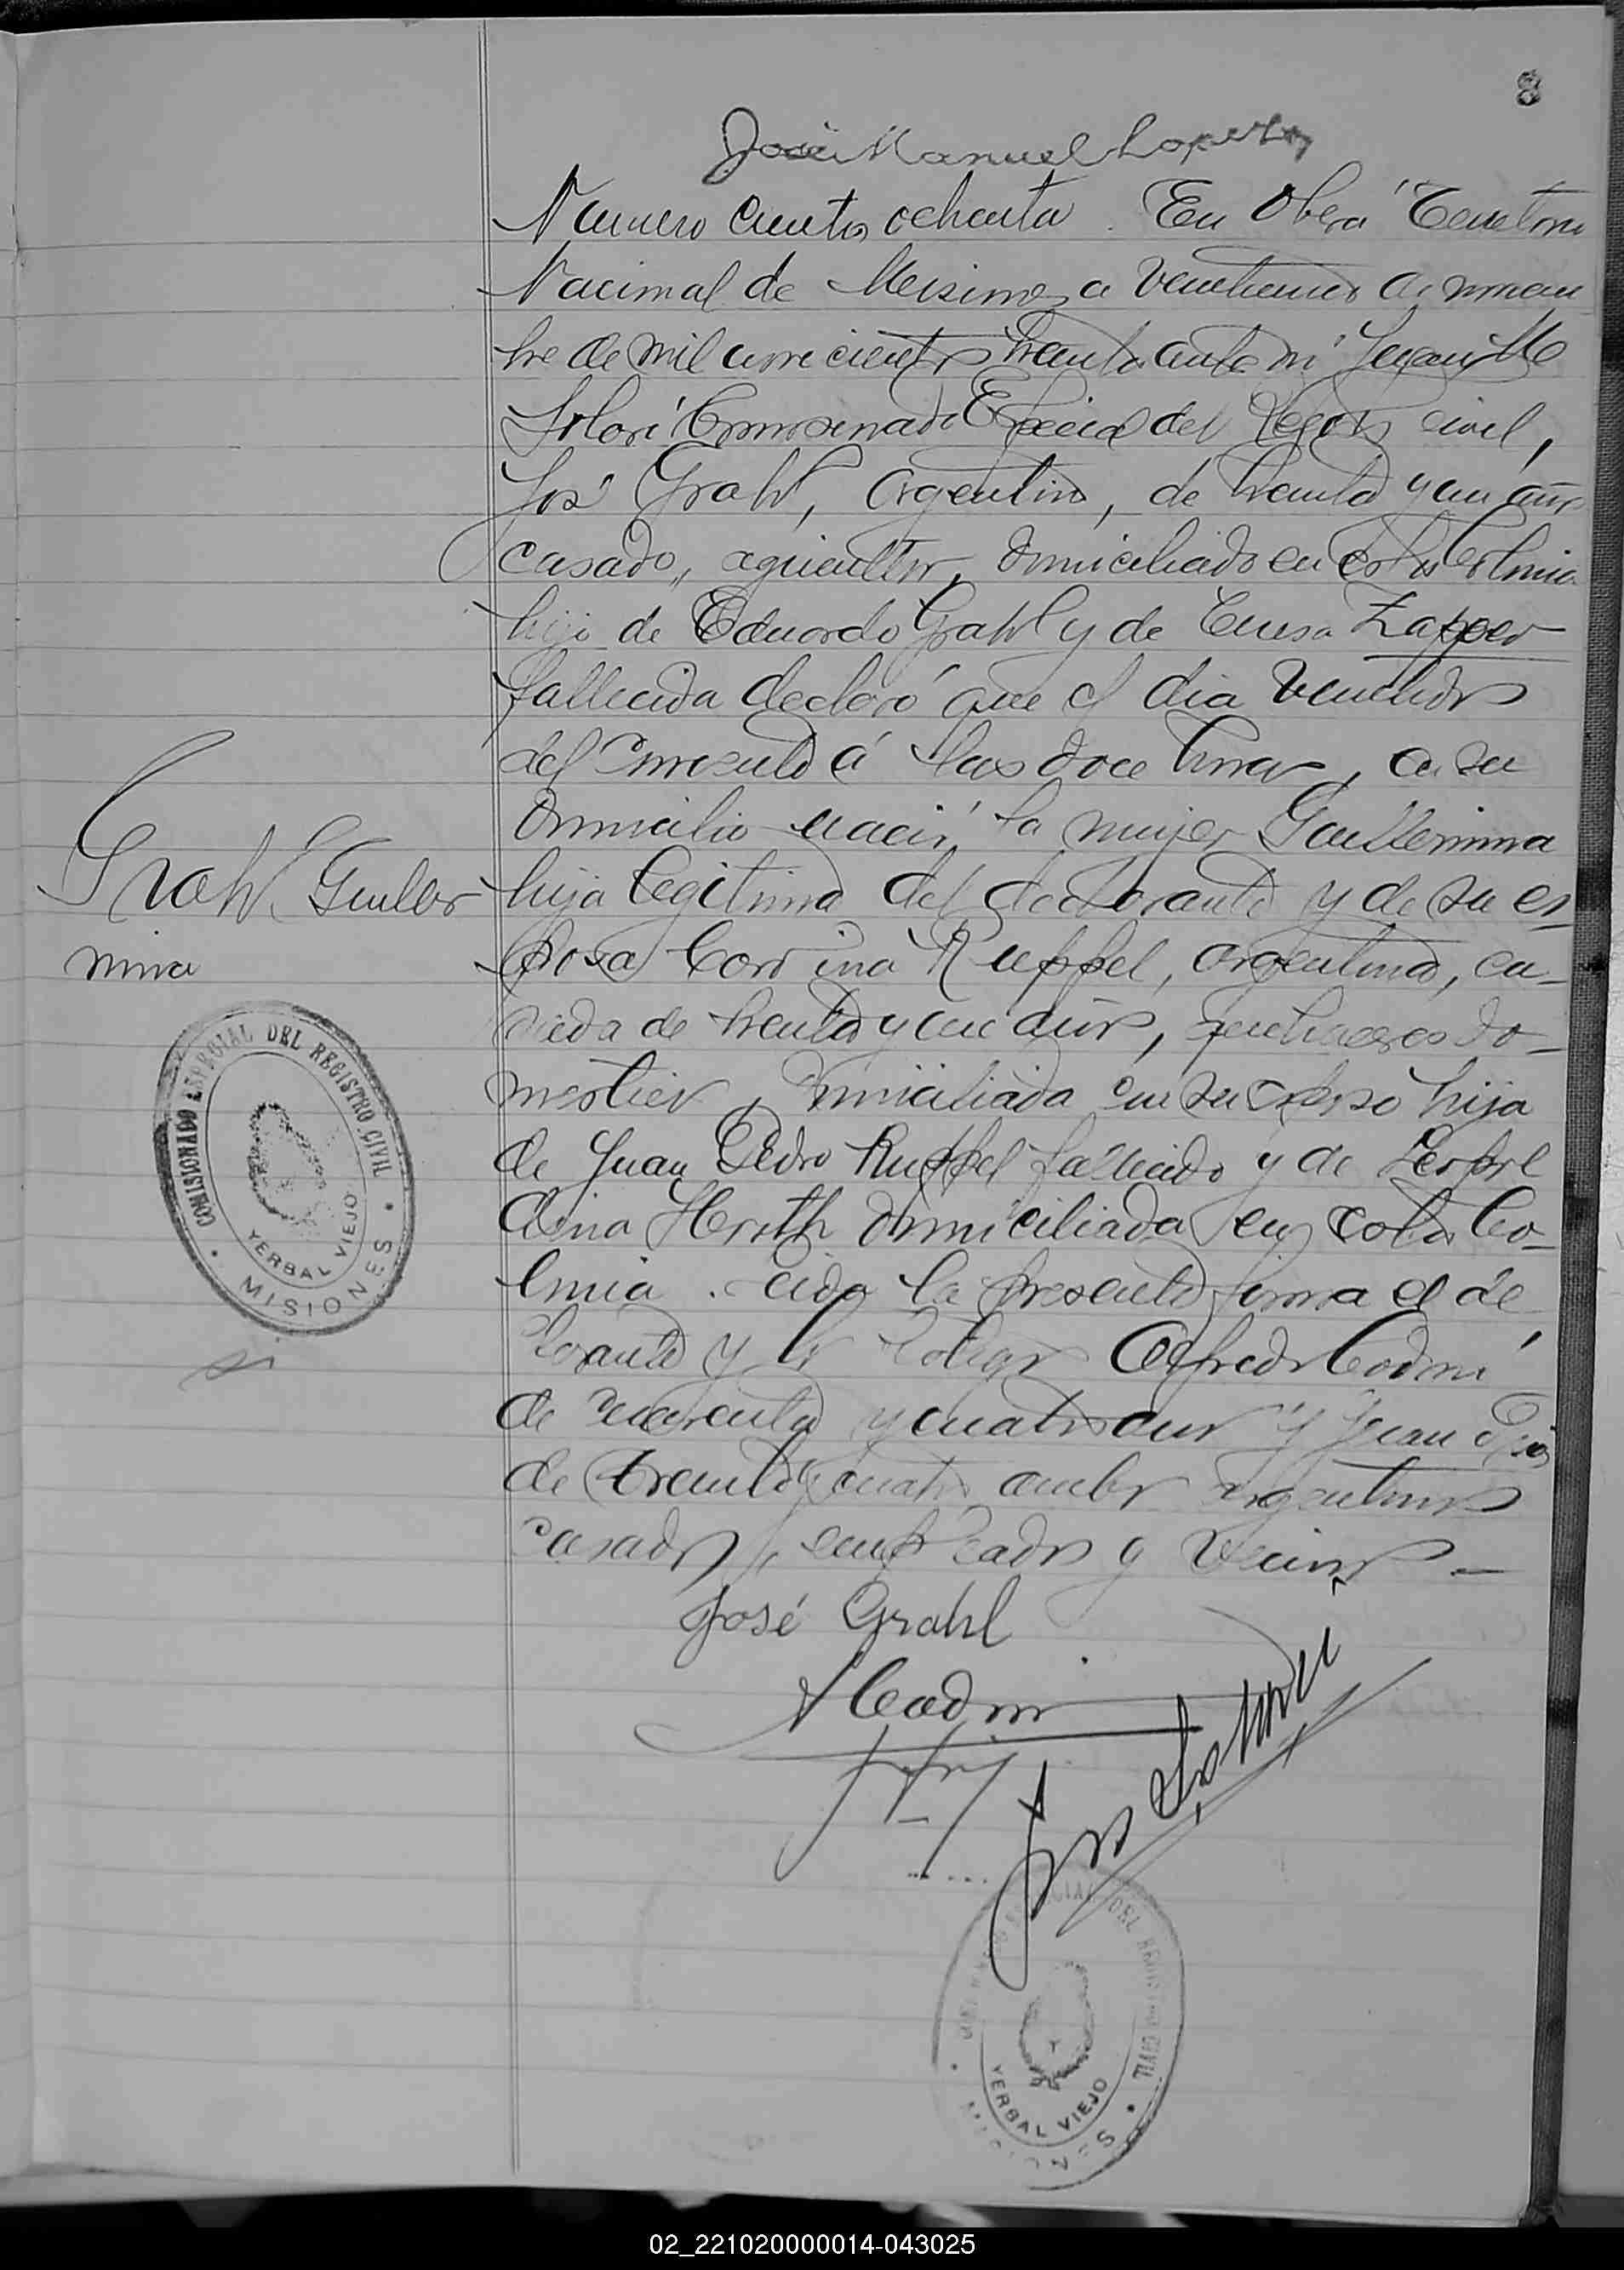 8
José Manuel Lopez
Numero ciento ochenta. En Oberá Territorio
Nacional de Misiones a veinticinco de noviem
bre de mil novecientos treinta ante mi Juan
Solari Comisionado Especial del Registro civil,
José Grahl, argentino, de treinta y un años
casado, agricultor, domiciliado en esta Colonia
hijo de Eduardo Grahl y de Teresa Zapper
fallecida declaró que el dia veintidos
del corriente á las doce horas, en su
domicilio nació la mujer Guillermina
Grahl Guiller
mina
hija legitima del declarante y de su es
posa Corina Ruppel, argentina, ca-
sada de treinta y un años, quehaceres do-
mesticos, domiciliada en su esposo hija
de Juan Pedro Ruppel fallecido y de
dina Herith domiciliada en esta Co-
lonia. Leida la presente firma el de
clarante y los testigos Alfredo Codoni
de cuarenta y cuatro años y Juan
de treinta y cuatro ambos argentinos
casados, empleados y vecinos -
José Grahl
A Codoni
COMISIONADO ESPECIAL DEL REGISTRO CIVIL
YERBAL VIEJO
MISIONES
YERBAL VIEJO
MISIONES
02_221020000014-043025